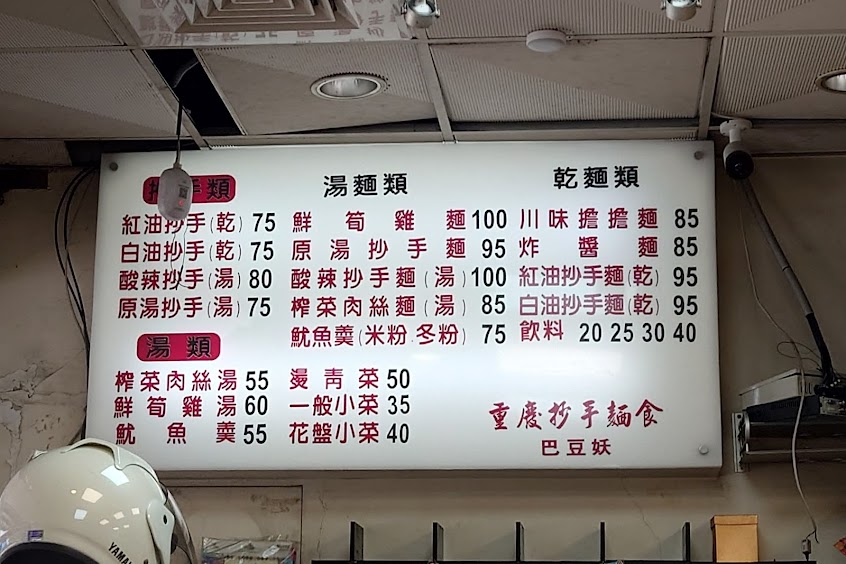 抄手類
紅油抄手(乾) 75
白油抄手(乾) 75
酸辣抄手(湯) 80
原湯抄手(湯) 75
湯類
榨菜肉絲湯 55
鮮筍雞湯 60
魷魚羹 55
湯麵類
鮮筍雞麵 100
原湯抄手麵 95
酸辣抄手麵(湯) 100
榨菜肉絲麵(湯) 85
魷魚羹(米粉.冬粉) 75
燙青菜 50
一般小菜 35
花盤小菜 40
乾麵類
川味擔擔麵 85
炸醬麵 85
紅油抄手麵(乾) 95
白油抄手麵(乾) 95
飲料 20 25 30 40
重慶抄手麵食
巴豆妖
YAMAHA